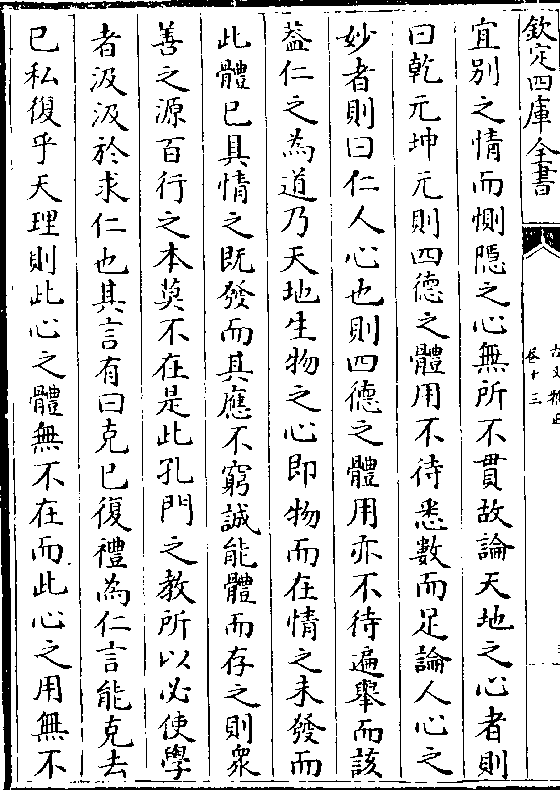 欽定四庫全書
卷十三
宜别之情而惻隠之心無所不貫故論天地之心者則
曰乾元坤元則四德之體用不待悉數而足論人心之
妙者則曰仁人心也則四德之體用亦不待遍舉而該
葢仁之為道乃天地生物之心即物而在情之未發而
此體已具情之既發而其應不窮誠能體而存之則衆
善之源百行之本莫不在是此孔門之教所以必使學
者汲汲於求仁也其言有曰克已復禮為仁言能克去
已私復乎天理則此心之體無不在而此心之用無不